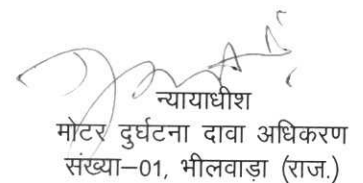 न्यायाधीश
मोटर दुर्घटना दावा अधिकरण
संख्या–01, भीलवाड़ा (राज.)